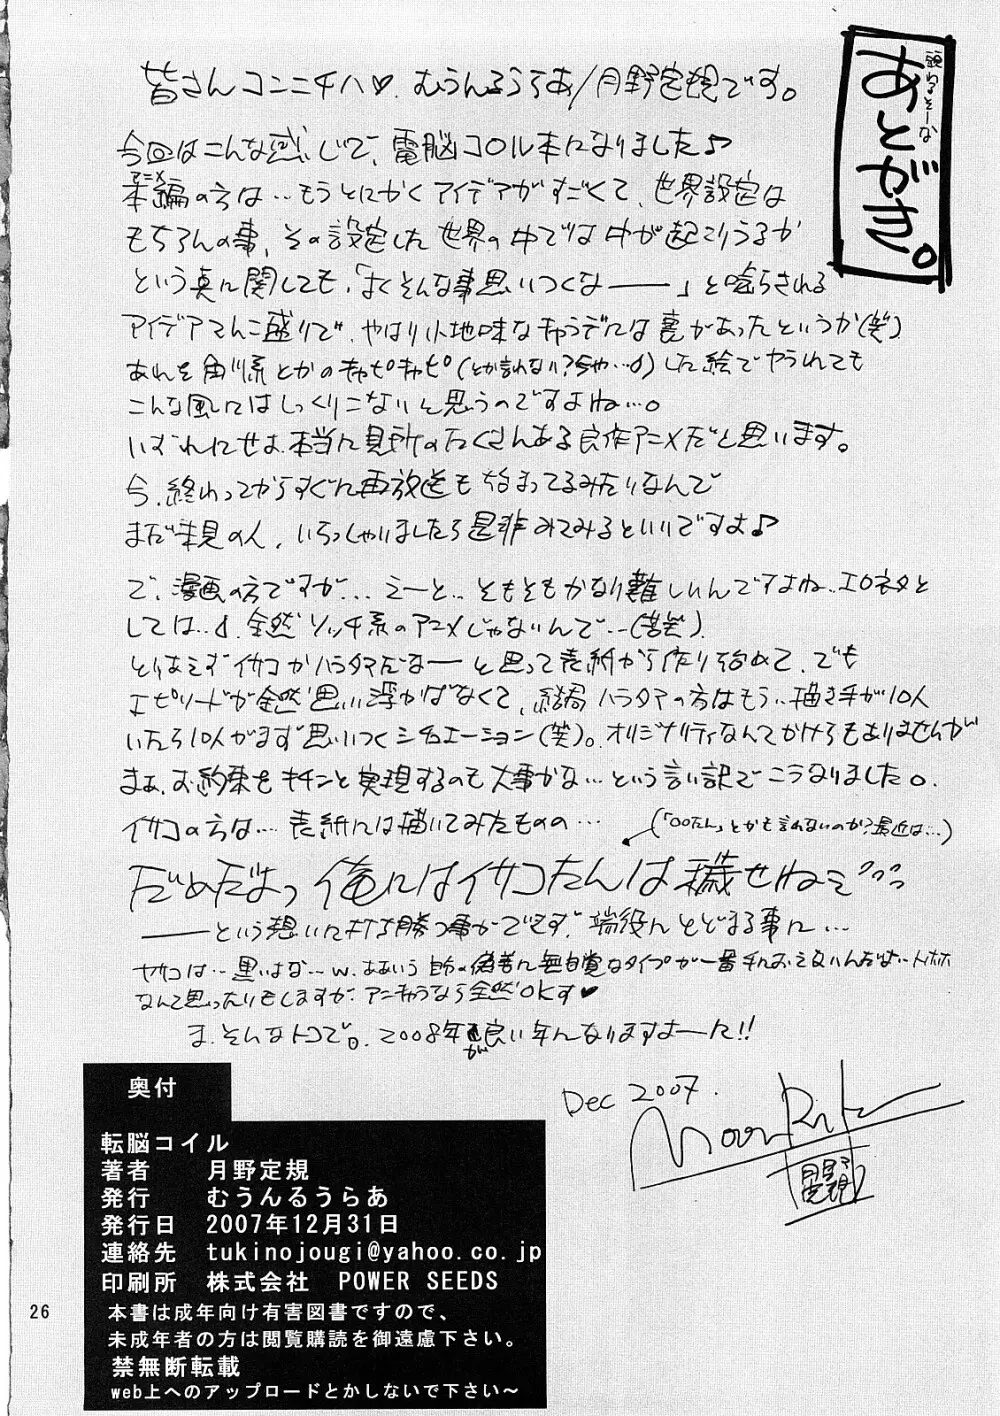 あとがき。
皆さんコンニチハ♡. むうんるうらあ/月野定規です。
今回はこんな感じで、電脳コイル本になりました♪
本編の方は…もうとにかくアイデアがすごくて、世界設定は
アニメ
もちろんの事、その設定した世界の中では中が起こりうるか
という真に関しても、「よくそんな事思いつくなー」と唸らされる
アイデアてんこ盛りで、やはり小地味なキャラデには裏があったというか(笑)
あれを角川系とかのキャピキャピ(とか言わない?今や…♂)した絵でやられても
こんな風にはしっくりこないと思うのですよね…。
いずれにせよ、本当に見所のたくさんある良作アニメだと思います。
今、終わってからすぐに再放送も始まってるみたいなんで
まだ未見の人、いらっしゃいましたら是非みてみるといいですよ♪
で、漫画の方ですが…えーと…そもそもかなり難しいんですよね…エロネタと
しては…♂. 全然ソッチ系のアニメじゃないんで…(苦笑).
とりあえずイサコがハラタマだなーと思って表紙から作り始めて、でも
エピソードが全然思い浮かばなくて、結局ハラタマの方はもう…描き手が10人
いたら10人がまず思いつくシチュエーション(笑)。オリジナリティなんてかけらもありませんが
まぁ、お約束をキチンと実現するのも大事かな…という言い訳でこうなりました。
イサコの方は… 表紙には描いてみたものの…
(「○○たん」とかも言わないのか?最近は…)
だめだよっ 俺にはイサコたんは穢せねぇ
ーという想いに打ち勝つ事ができず、端役にとどまる事に…
ヤサコは…黒いよな…w. ああいう自分の偽善に無自覚なタイプが一番手におえないんだよ…トホホ
なんて思ったりもしますが、アニキャラなら全然OKす♥
ま、そんなトコで。2008年が良い年になりますよーに!!
Dec 2007.
MoonRuler
月野定規
奥付
転脳コイル
著者 月野定規
発行 むうんるうらあ
発行日 2007年12月31日
連絡先 tukinojougi@yahoo.co.jp
印刷所 株式会社 POWER SEEDS
本書は成年向け有害図書ですので、
未成年者の方は閲覧購読を御遠慮下さい。
禁無断転載
web上へのアップロードとかしないで下さい～
26